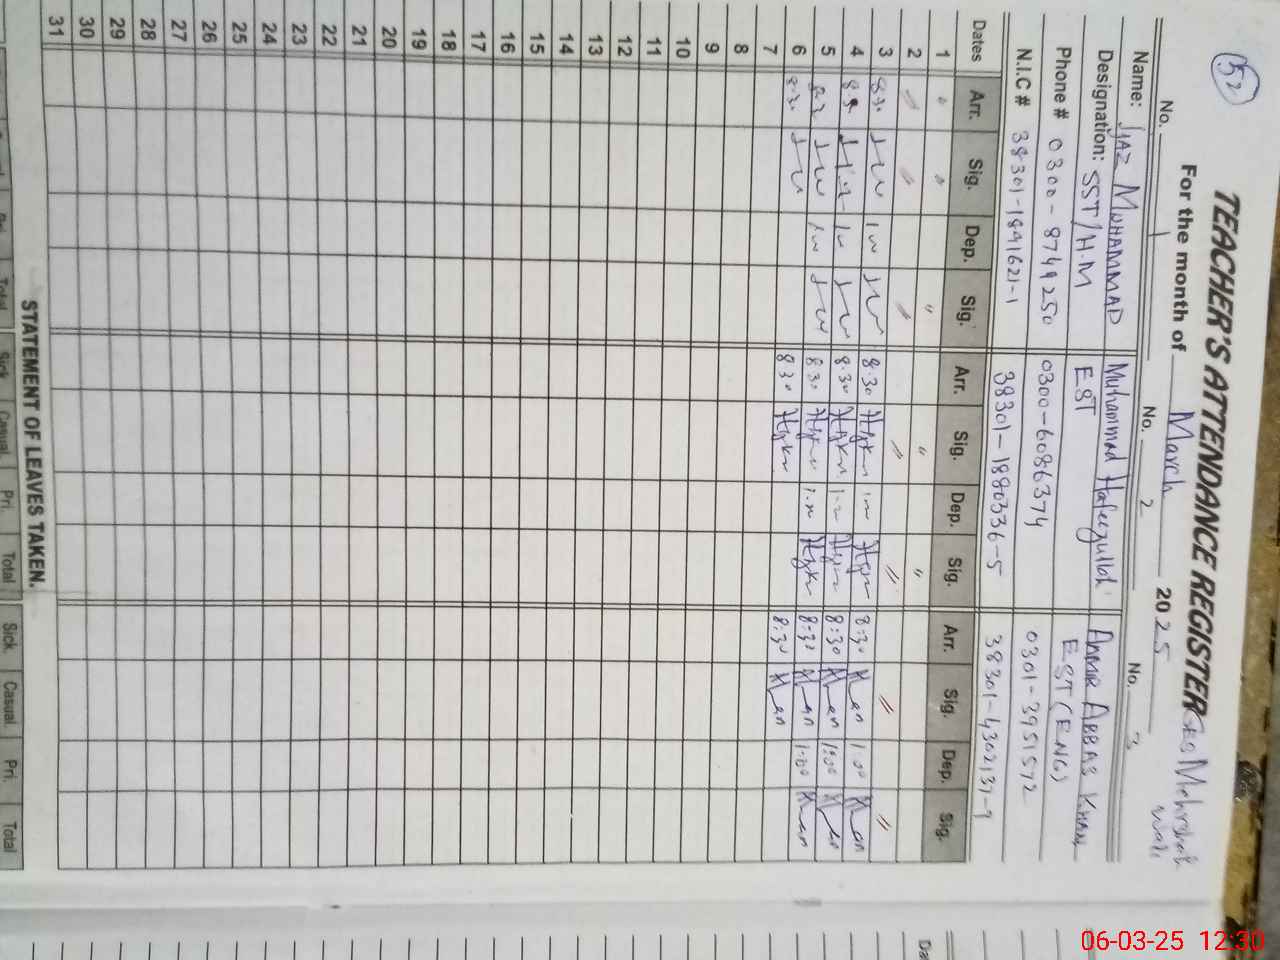 52
TEACHER'S ATTENDANCE REGISTER
For the month of March 2025
No. 1 No. 2 No. 3
Name: IJAZ MUHAMMAD Muhammad Hafeezullah AAMIR ABBAS KHAN
Designation: SST/H.M EST EST (ENG)
Phone # 0300-8749250 0300-6086374 0301-3951572
N.I.C # 38301-1891621-1 38301-1880336-5 38301-4302137-9
Dates Arr. Sig. Dep. Sig. Arr. Sig. Dep. Sig. Arr. Sig. Dep. Sig.
1 " " " " "
2 // // // // // // //
3 8:30 8:30 8:30 Khan 1:00 Khan
4 8:30 8:30 8:30 Khan 1:00 Khan
5 8:30 8:30 8:30 Khan 1:00 Khan
6 8:30 8:30 8:30 Khan
7
8
9
10
11
12
13
14
15
16
17
18
19
20
21
22
23
24
25
26
27
28
29
30
31
STATEMENT OF LEAVES TAKEN.
Total Sick Casual Pri. Total Sick. Casual. Pri. Total
06-03-25 12:30